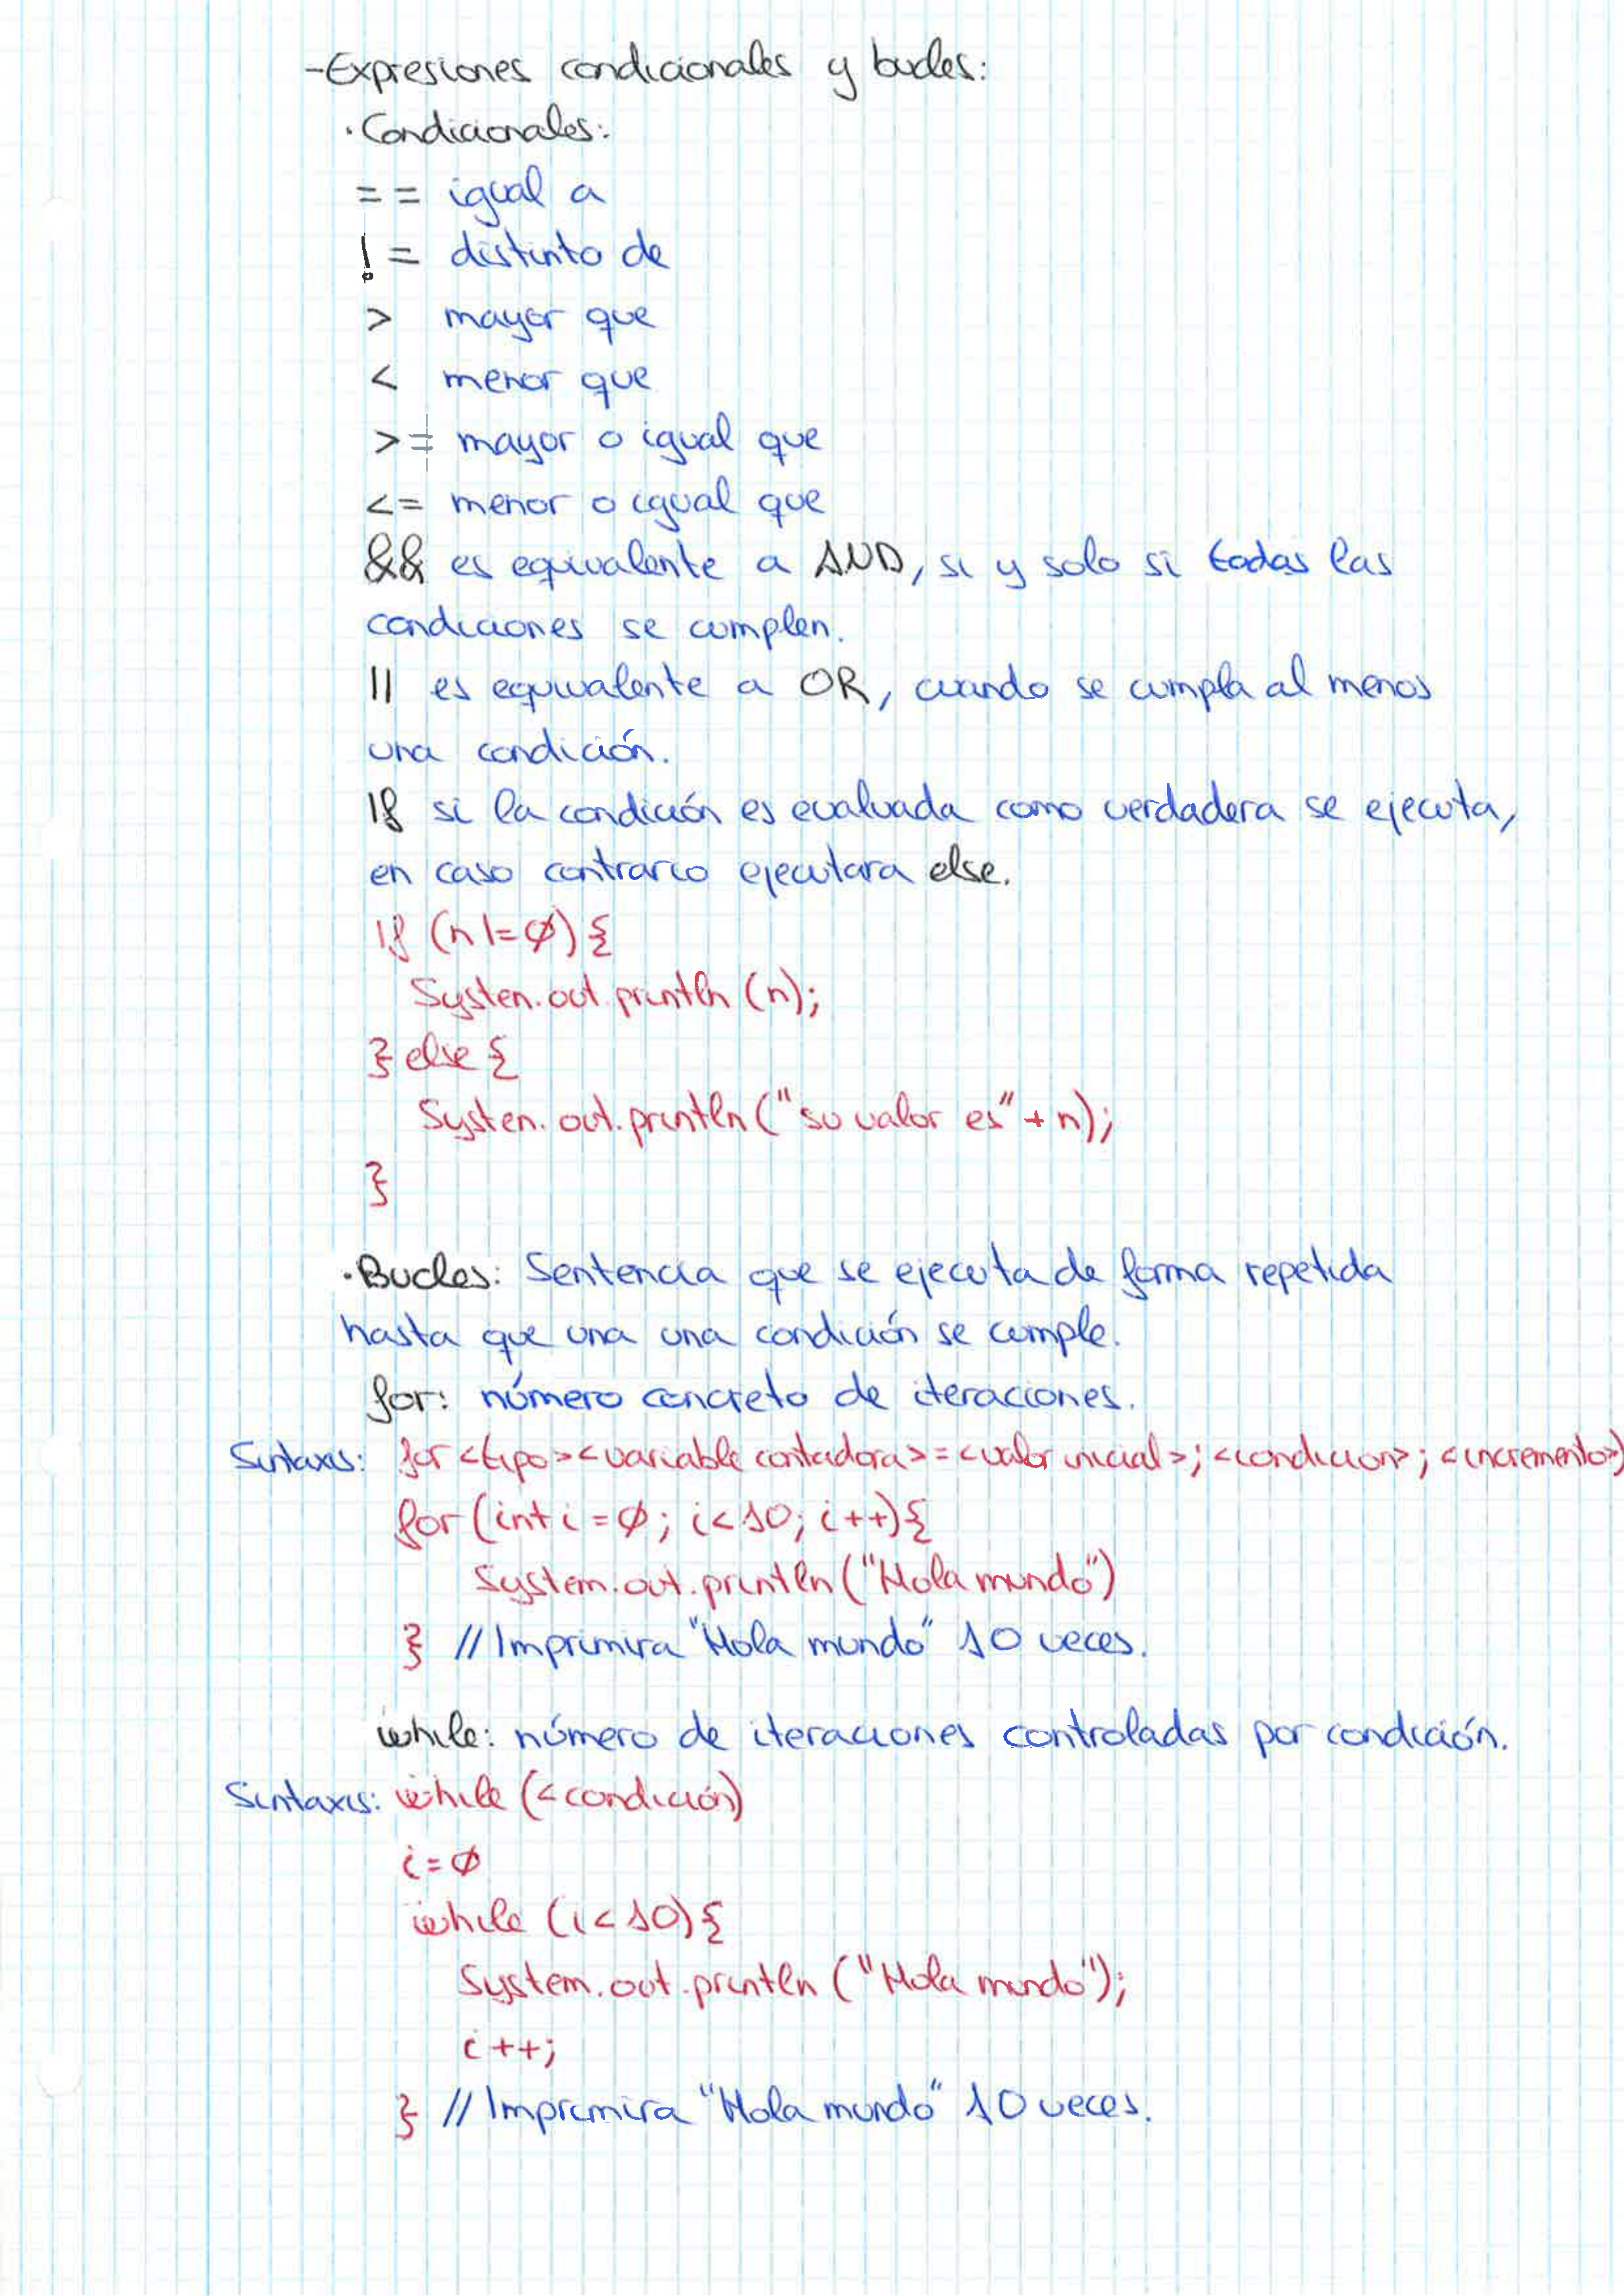 -Expresiones condicionales y bucles:
·Condicionales:
== igual a
!= distinto de
> mayor que
< menor que
>= mayor o igual que
<= menor o igual que
&& es equivalente a AND, si y solo si todas las
condiciones se cumplen.
|| es equivalente a OR, cuando se cumpla al menos
una condición.
If si la condición es evaluada como verdadera se ejecuta,
en caso contrario ejecutara else.
If (n != 0) {
Systen.out.println (n);
} else {
Systen.out.println ("su valor es" + n);
}
·Bucles: Sentencia que se ejecuta de forma repetida
hasta que una una condición se cumple.
for: número concreto de iteraciones.
Sintaxis: for <tipo> <variable contadora> = <valor inicial>; <condicion>; <incremento>)
for (int i = 0; i < 10; i++) {
System.out.println ("Hola mundo")
} // Imprimira "Hola mundo" 10 veces.
while: número de iteraciones controladas por condición.
Sintaxis: while (< condición)
i = 0
while (i < 10) {
System.out.println ("Hola mundo");
i ++;
} // Imprimira "Hola mundo" 10 veces.